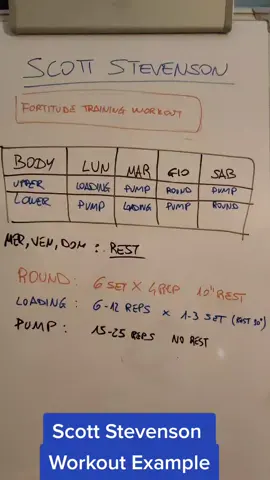 SCOTT STEVENSON
FORTITUDE TRAINING WORKOUT
BODY LUN MAR GIO SAB
UPPER LOADING PUMP ROUND PUMP
LOWER PUMP LOADING PUMP ROUND
MER, VEN, DOM :. REST
ROUND: 6 SET X 4 REP 10" REST
LOADING: 6-12 REPS X 1-3 SET (REST 30")
PUMP: 15-25 REPS NO REST
Scott Stevenson
Workout Example